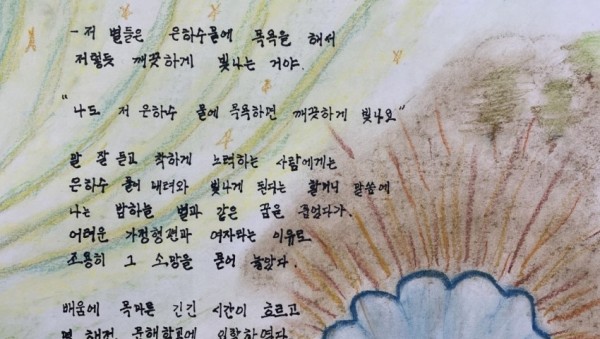 - 저 별들은 은하수 물에 목욕을 해서
저렇듯 깨끗하게 빛나는 거야.
"나도 저 은하수 물에 목욕하면 깨끗하게 빛나요"
말 잘 듣고 착하게 노력하는 사람에게는
은하수 물이 내려와 빛나게 된다는 할머니 말씀에
나는 밤하늘 별과 같은 꿈을 품었다가.
어려운 가정형편과 여자라는 이유로
조용히 그 소망을 묻어 놓았다.
배움에 목마른 긴긴 시간이 흐르고
몇 해전 문해학교에 입학하였다